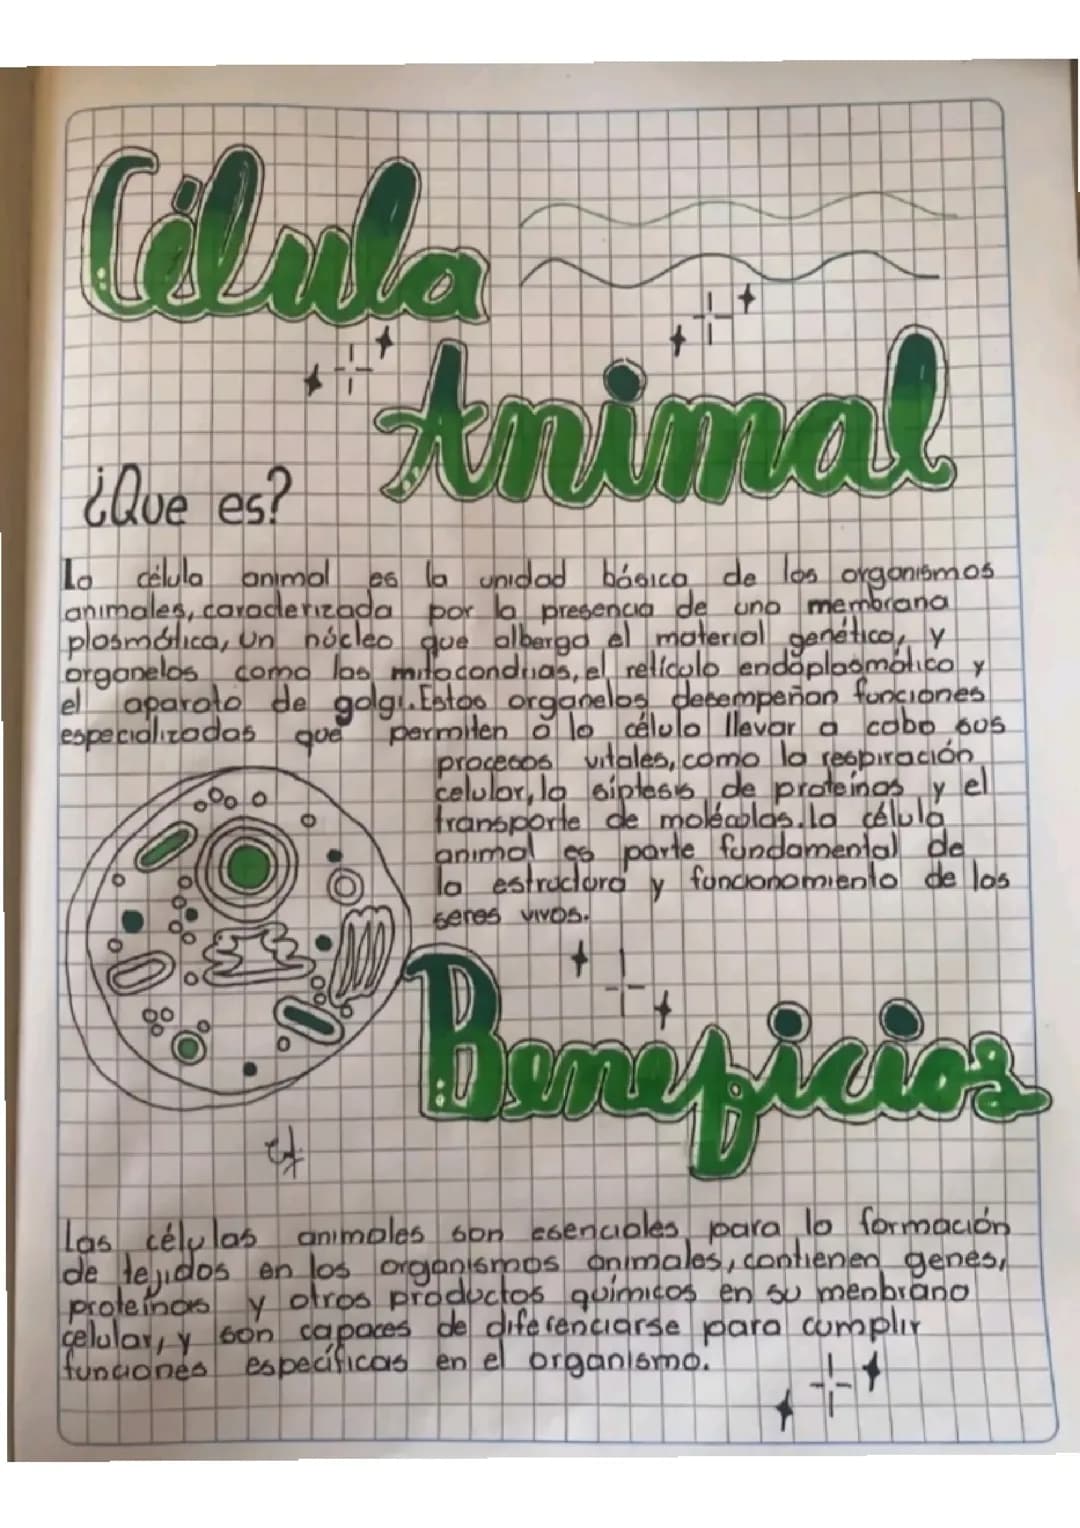 Célula
Animal
¿Que es?
La célula animal es la unidad básica de los organismos
animales, caracterizada por la presencia de una membrana
plasmática, un núcleo que alberga el material genético, y
organelos como las mitocondrias, el retículo endoplasmático y
el aparato de golgi. Estos organelos desempeñan funciones
especializadas que permiten a la célula llevar a cabo sus
procesos vitales, como la respiración
celular, la síntesis de proteínas y el
transporte de moléculas. La célula
animal es parte fundamental de
la estructura y funcionamiento de los
seres vivos.
Beneficios
Las células animales son esenciales para la formación
de tejidos en los organismos animales, contienen genes,
proteínas y otros productos químicos en su menbrana
celular, y son capaces de diferenciarse para cumplir
funciones específicas en el organismo.